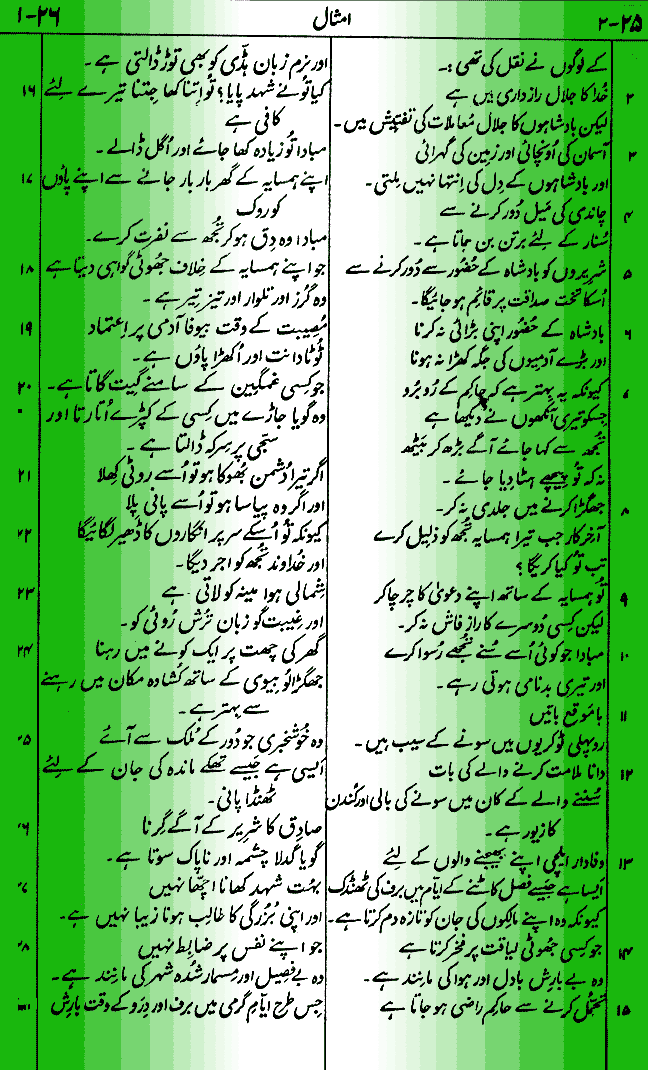 ۲-۲۵
امثال
۱-۲۶
کے لوگوں نے نقل کی تھی:۔
۲ خُدا کا جلال رازداری میں ہے
لیکن بادشاہوں کا جلال مُعاملات کی تفتیش میں۔
۳ آسمان کی اُونچائی اور زمین کی گہرائی
اور بادشاہوں کے دِل کی اِنتہا نہیں مِلتی۔
۴ چاندی کی مَیل دُور کرنے سے
سُنار کے لئے برتن بن جاتا ہے۔
۵ شرِیروں کو بادشاہ کے حضُور سے دُور کرنے سے
اُسکا تخت صداقت پر قائِم ہو جائیگا۔
۶ بادشاہ کے حضُور اپنی بڑائی نہ کرنا
اور بڑے آدمیوں کی جگہ کھڑا نہ ہونا
۷ کیونکہ یہ بہتر ہے کہ حاکِم کے رُوبرُو
جِسکو تیری آنکھوں نے دیکھا ہے
تُجھ سے کہا جائے آگے بڑھ کر بَیٹھ
نہ کہ تُو پیچھے ہٹا دِیا جائے۔
۸ جھگڑا کرنے میں جلدی نہ کر۔
آخِرکار جب تیرا ہمسایہ تُجھ کو ذلِیل کرے
تب تُو کیا کریگا؟
۹ تُو ہمسایہ کے ساتھ اپنے دعویٰ کا چرچا کر
لیکن کِسی دُوسرے کا راز فاش نہ کر۔
۱۰ مبادا جو کوئی اُسے سُنے تُجھے رُسوا کرے
اور تیری بدنامی ہوتی رہے۔
۱۱ باموقع باتیں
روپہلی ٹوکریوں میں سونے کے سیب ہیں۔
۱۲ دانا ملامت کرنے والے کی بات
سُننے والے کے کان میں سونے کی بالی اور کُندن
کا زیور ہے۔
۱۳ وفادار ایلچی اپنے بھیجنے والوں کے لئے
اَیسا ہے جَیسے فصل کاٹنے کے ایّام میں برف کی ٹھنڈک
کیونکہ وہ اپنے مالِکوں کی جان کو تازہ دم کرتا ہے۔
۱۴ جو کِسی جھُوٹی لیاقت پر فخر کرتا ہے
وہ بے بارِش بادل اور ہوا کی مانِند ہے۔
۱۵ تحمُّل کرنے سے حاکِم راضی ہو جاتا ہے
اور نرم زبان ہڈّی کو بھی توڑ ڈالتی ہے۔
۱۶ کیا تُو نے شہد پایا؟ تُو اِتنا کھا جِتنا تیرے لِئے
کافی ہے
مبادا تُو زیادہ کھا جائے اور اُگل ڈالے۔
۱۷ اپنے ہمسایہ کے گھر بار بار جانے سے اپنے پاؤں
کو روک
مبادا وہ دِق ہو کر تُجھ سے نفرت کرے۔
۱۸ جو اپنے ہمسایہ کے خِلاف جھُوٹی گواہی دیتا ہے
وہ گُرز اور تلوار اور تیز تِیر ہے۔
۱۹ مُصیبت کے وقت بیوفا آدمی پر اِعتماد
ٹُوٹا دانت اور اُکھڑا پاؤں ہے۔
۲۰ جو کِسی غمگین کے سامنے گیت گاتا ہے۔
وہ گویا جاڑے میں کِسی کے کپڑے اُتارتا اور
سجّی پر سِرکہ ڈالتا ہے۔
۲۱ اگر تیرا دُشمن بھُوکا ہو تو اُسے روٹی کھلا
اور اگر وہ پیاسا ہو تو اُسے پانی پِلا
۲۲ کیونکہ تُو اُسکے سر پر انگاروں کا ڈھیر لگائیگا
اور خُداوند تُجھ کو اجر دیگا۔
۲۳ شِمالی ہوا مینہ کو لاتی ہے
اور غِیبت گو زبان تُرش رُوئی کو۔
۲۴ گھر کی چھت پر ایک کونے میں رہنا
جھگڑالُو بیوی کے ساتھ کُشادہ مکان میں رہنے
سے بہتر ہے۔
۲۵ وہ خُوشخبری جو دُور کے مُلک سے آئے
اَیسی ہے جَیسے تھکے ماندہ کی جان کے لِئے
ٹھنڈا پانی۔
۲۶ صادِق کا شرِیر کے آگے گِرنا
گویا گدلا چشمہ اور ناپاک سوتا ہے۔
۲۷ بہُت شہد کھانا اچھّا نہیں
اور اپنی بُزُرگی کا طالِب ہونا زیبا نہیں ہے۔
۲۸ جو اپنے نفس پر ضابِط نہیں
وہ بے فصِیل اور مِسمار شُدہ شہر کی مانِند ہے۔
جِس طرح ایّامِ گرمی میں برف اور دِرَو کے وقت بارِش